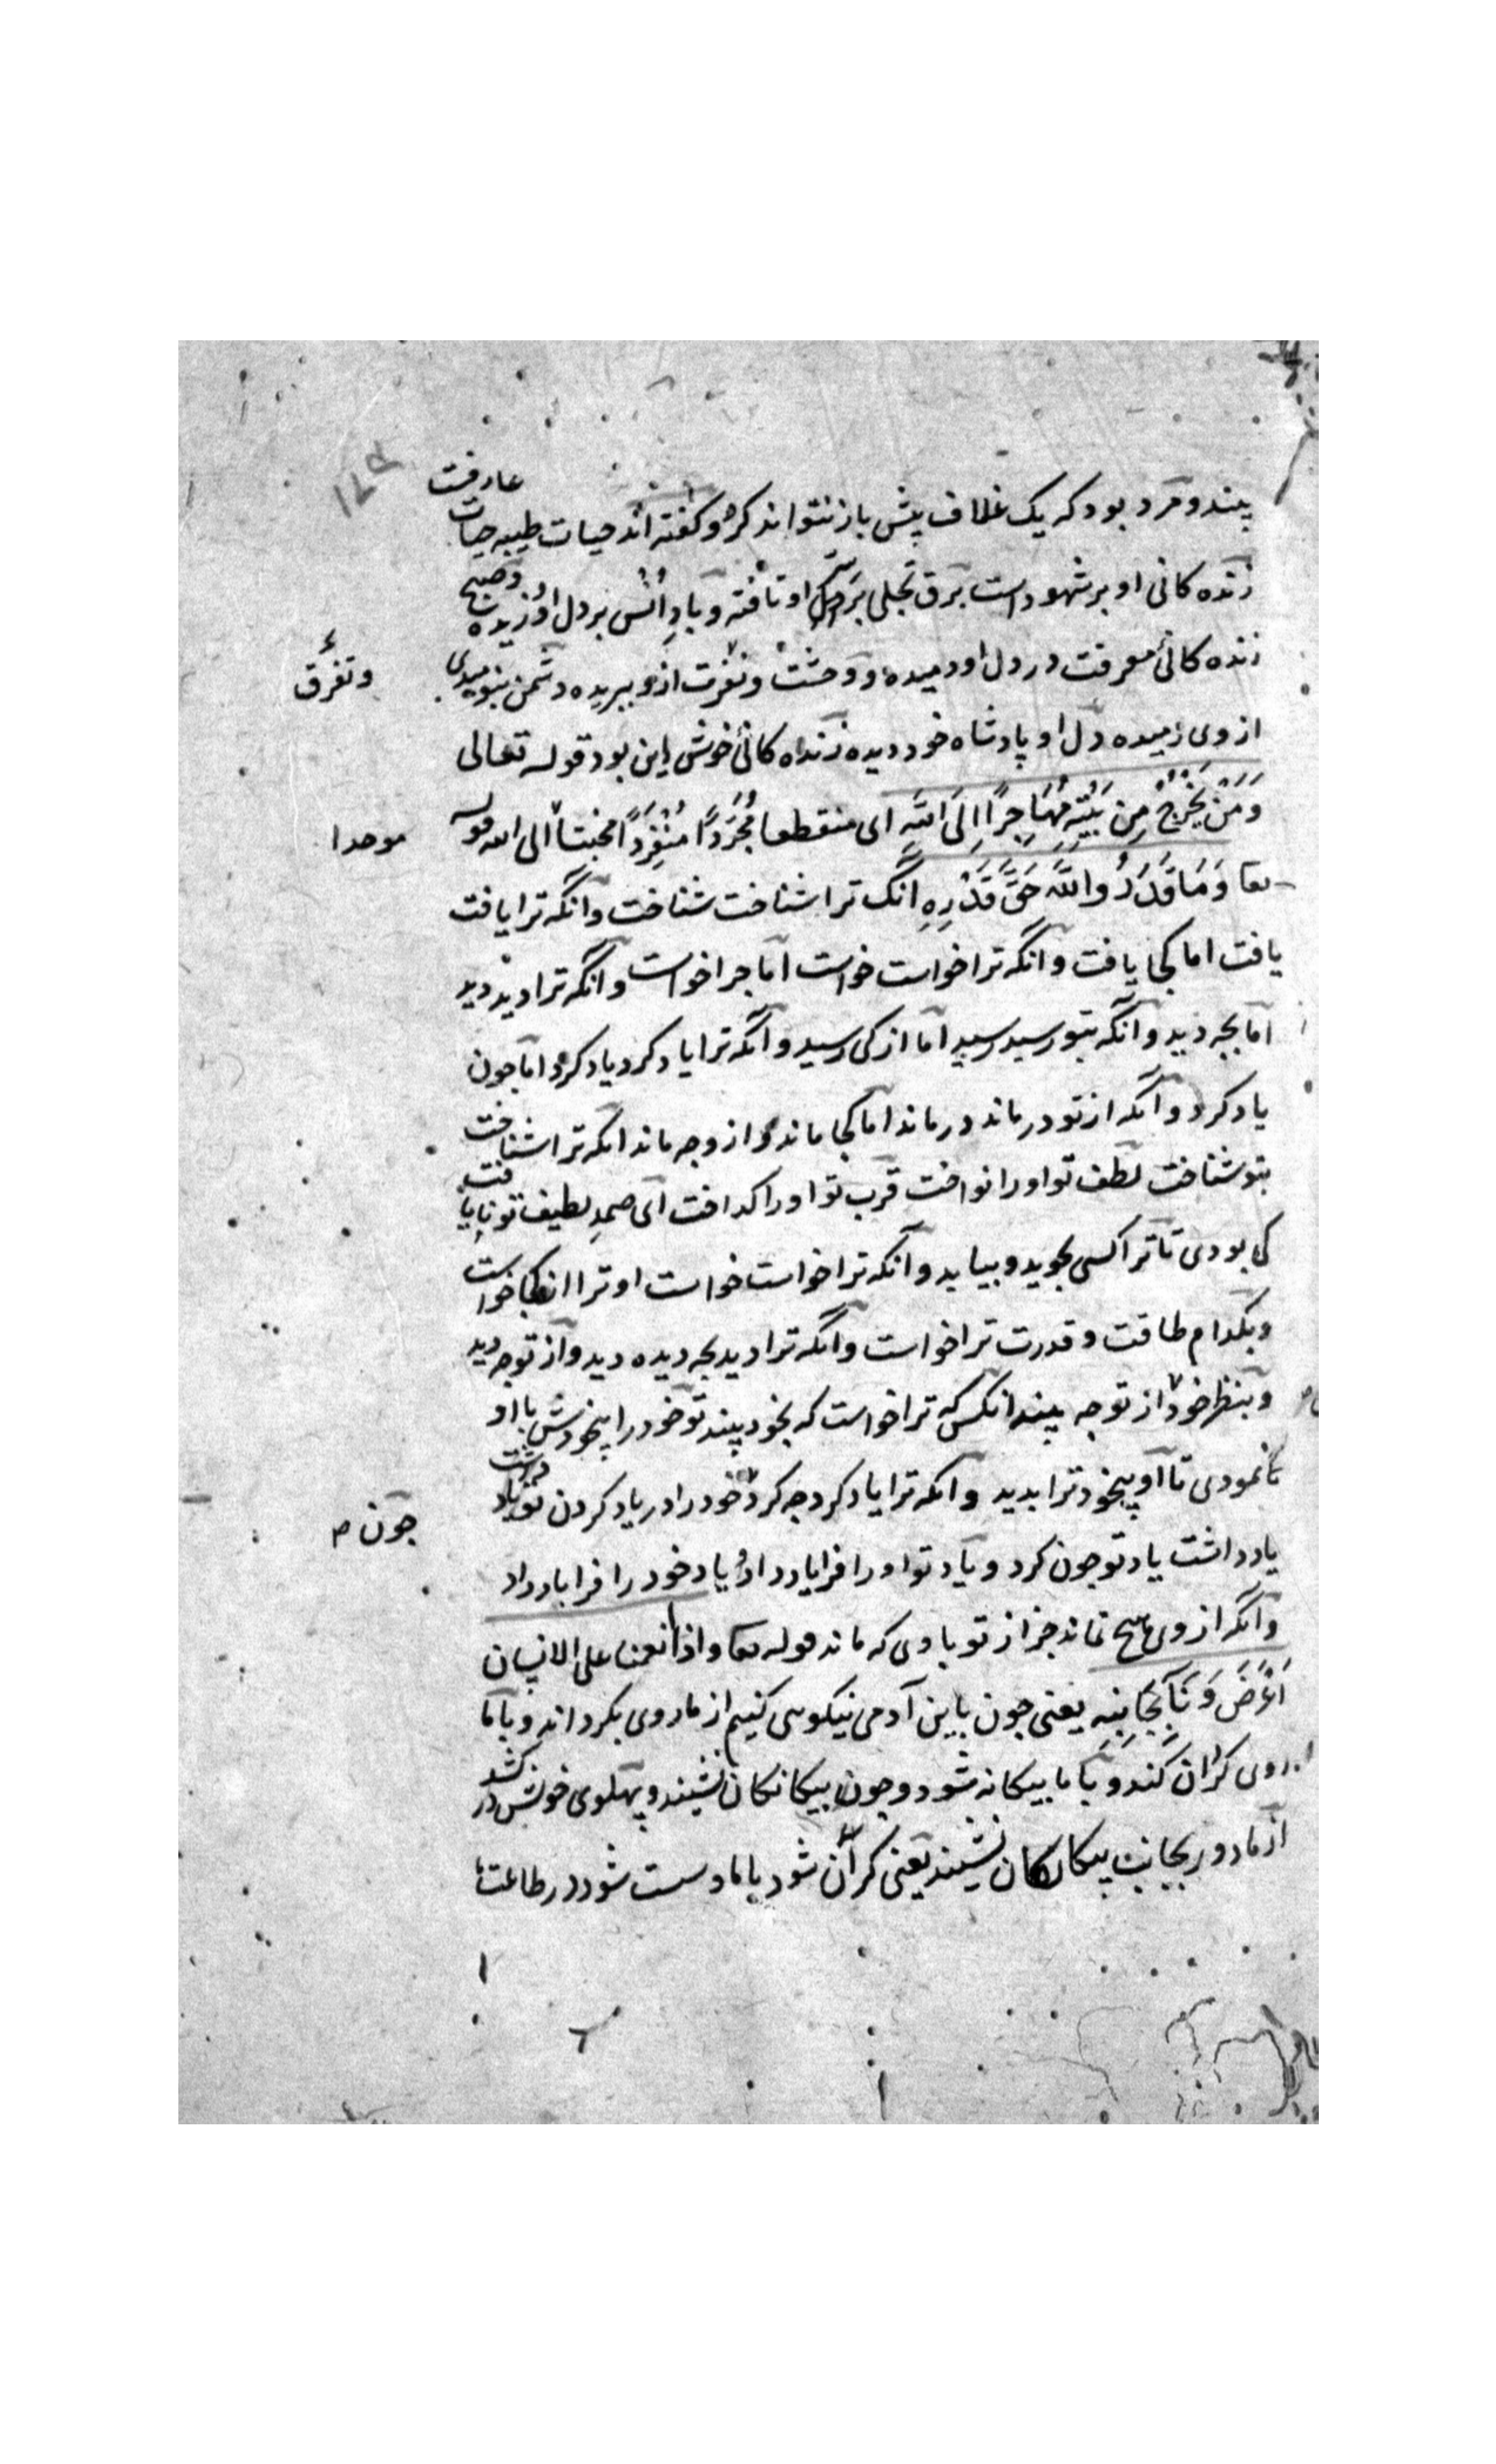 بیند و مرد بود که یک غلاف پیش باز نتواند کرد و کفته اند حیات طیبه حیات عارفست
زنده کانی او بر شهود است برق تجلی بر سر او تافته و باد انس بر دل او وزیده و صبح
زنده کانئ معرفت در دل او دمیده و وحشت و نفرت ازو ببریده دشمن بنومیدی
وتفرق
از وی رمیده دل او پادشاه خود دیده زنداه کانئ خوش این بود قوله تعالی
وَمَنْ یَخْرُجْ مِنْ بَیْتِهِ مُهَاجِرًا اِلَی اللّٰهِ ای منقطعا مُجَرَّدًا مُنْفَرِدًا مخبتا الی الله قوله
موحدا
تعا وَمَا قَدَرُوا اللّٰهَ حَقَّ قَدْرِهِ انک ترا شناخت شناخت وآنکه ترا یافت
یافت اما کجا یافت وآنکه ترا خواست خواست اما چرا خواست وآنکه ترا دید دید
اما بچه دید وآنکه بتو رسید رسید اما از کی رسید وآنکه ترا یاد کرد یاد کرد اما جون
یاد کرد وآنکه از تو درماند درماند اما کجا ماند و از وجه ماند انکه ترا شناخت
بتو شناخت لطف تو او را نواخت قرب تو او را کداخت ای صمد لطیف تو نایافت
کی بودی تا ترا کسی بجوید و بیابد وآنکه ترا خواست خواست او ترا از کجا خواست
و بکدام طاقت و قدرت ترا خواست وآنکه ترا دید بچه دیده دید و از تو چه دید
و بنظر خود از تو جه بیند انکس که ترا خواست که بخود بیند تو خود را بیخودش با او
نمودی تا او بیخود ترا بدید وآنکه ترا یاد کرد جه کرد خود را در یاد کردن تو یاد داشت
جون
یاد داشت یاد تو جون کرد و یاد تو او را فرا یاد داد یاد خود را فرا یاد داد
وآنکه از وی هیچ نماند جز از تو با وی که ماند قوله تعا واذا انعمنا علی الانسان
اَعْرَضَ وَنَآ بِجَانِبِهِ یعنی جون با این آدمی نیکویی کنیم از ما روی بکرداند و با ما
روی کران کند و با ما بیکانه شود و جون بیکانکان نشیند و پهلوی خویش در کشد
از ما دور بجانب بیکانکان نشیند یعنی کران شود با ما و سست شود در طاعت